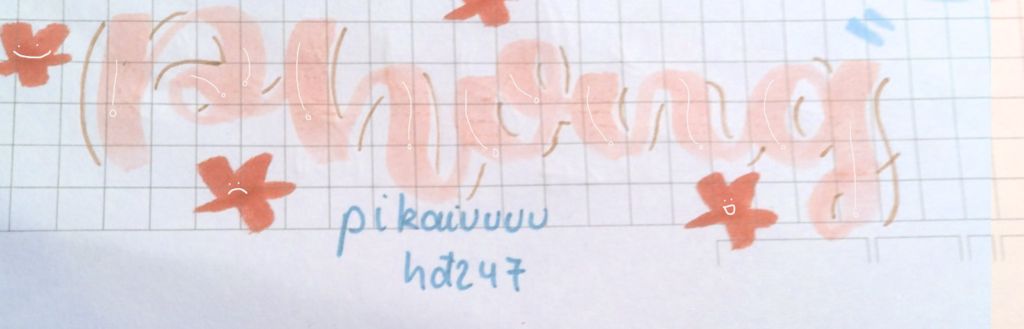 Phong
pikaiuuuu
hđ247